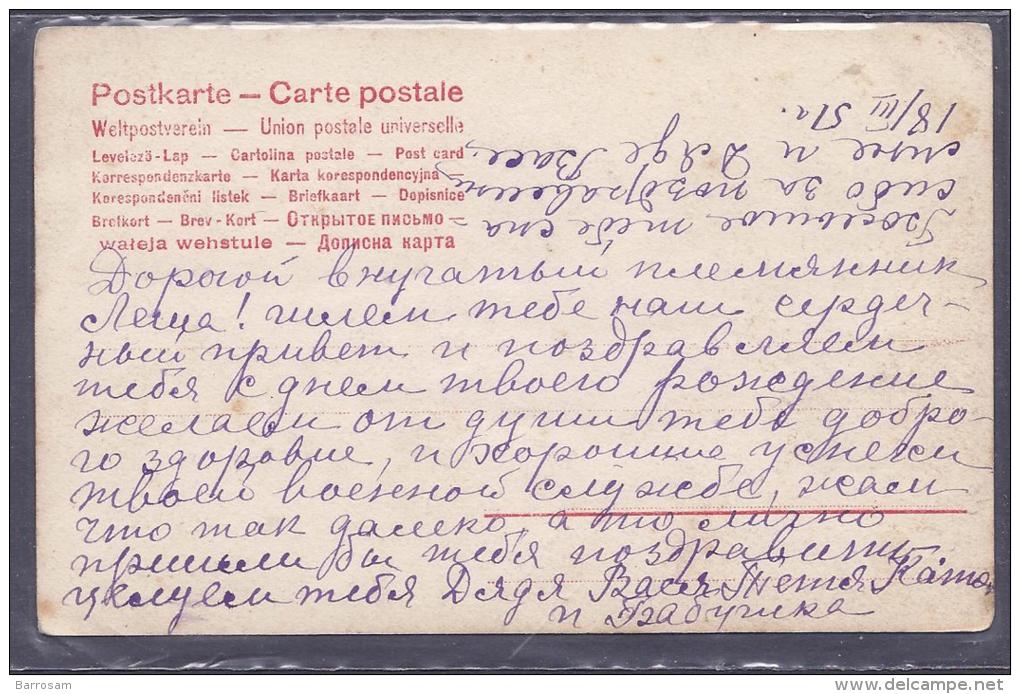 Postkarte — Carte postale
Weltpostverein — Union postale universelle
Levelező-Lap — Cartolina postale — Post card
Korrespondenzkarte — Karta korespondencyjna
Korespondenční lístek — Briefkaart — Dopisnice
Brefkort — Brev-Kort — Открытое письмо —
wałeja wehstule — Дописна карта
Дорогой внучатый племянник
Леша! шлем тебе наш сердеч-
ный привет и поздравляем
тебя с днем твоего рождение
желаем от души тебе добро-
го здоровие, и хорошие успехи
твоей военной службе, жаль
что так далеко, а то лично
пришли бы тебя поздравить
целуем тебя Дядя Вася Тетя Катя
и Бабушка
Большое тебе спа-
сибо за поздравлен
мне и Дяде Васе,
18/III 51г.
Barrosam
delcampe.net